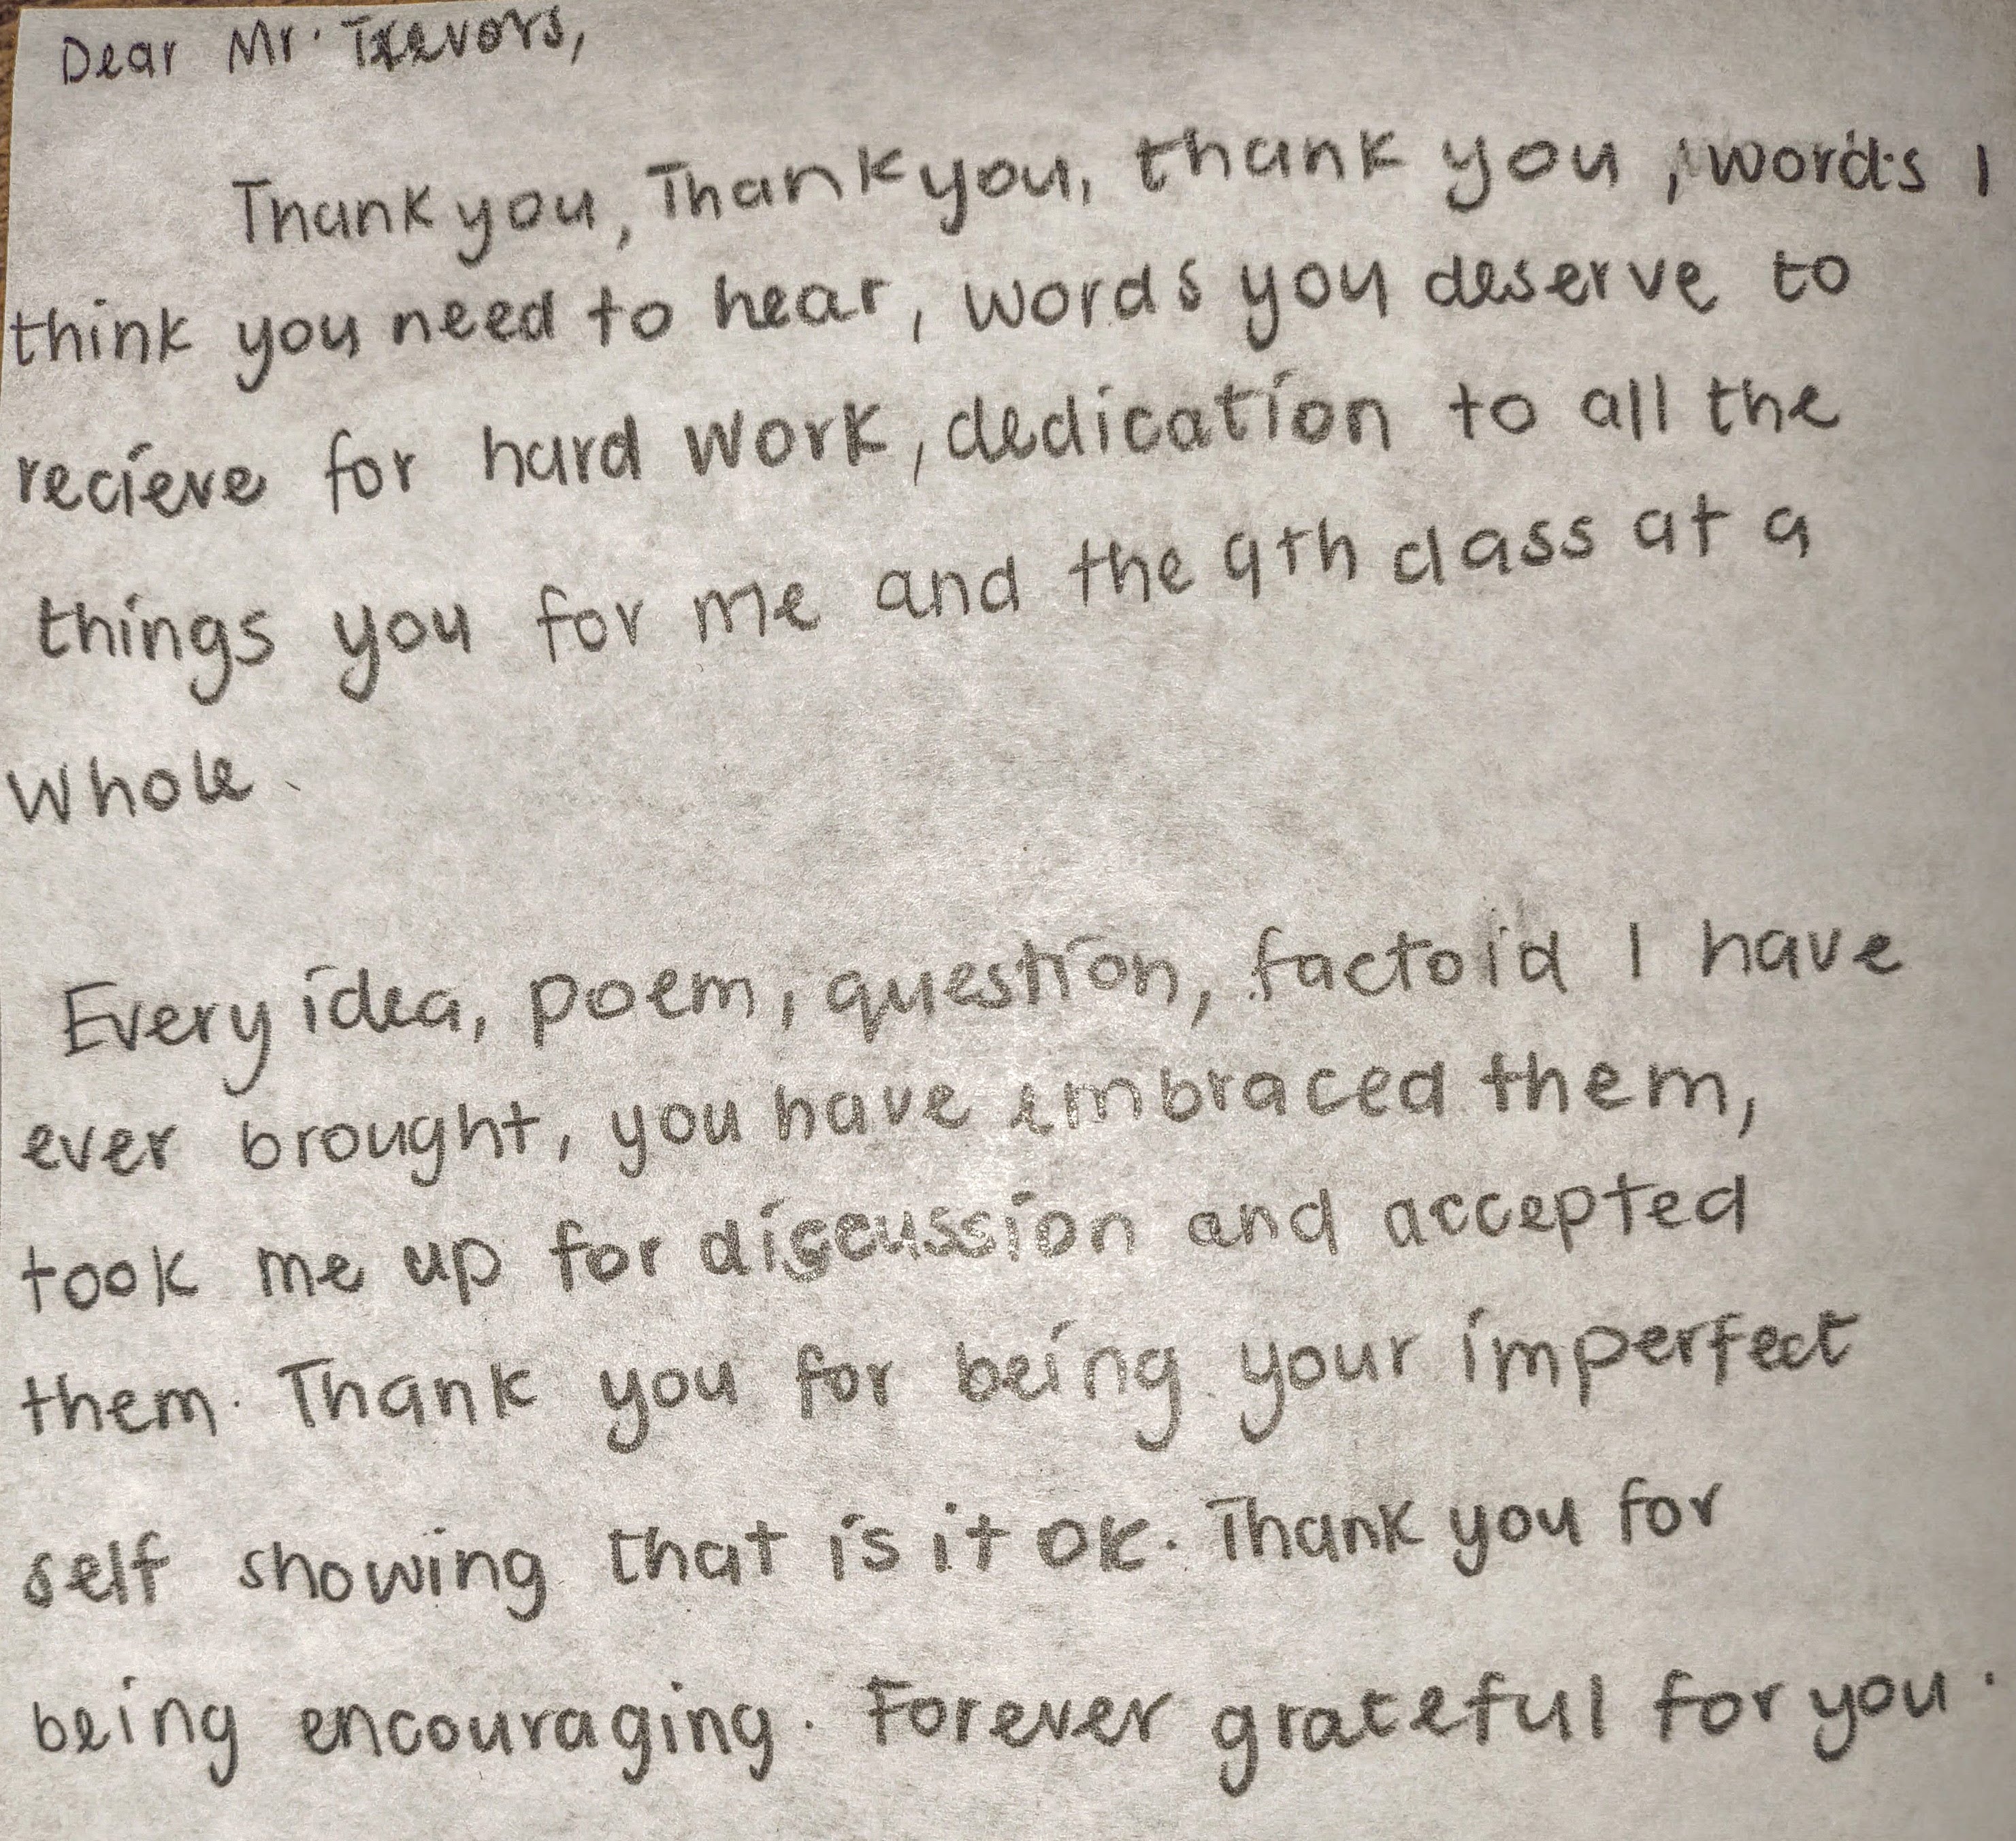 Dear Mr. Trevors,
Thank you, Thank you, thank you, words I
think you need to hear, words you deserve to
recieve for hard work, dedication to all the
things you for me and the 9th class at a
whole.
Every idea, poem, question, factoid I have
ever brought, you have embraced them,
took me up for discussion and accepted
them. Thank you for being your imperfect
self showing that is it ok. Thank you for
being encouraging. Forever grateful for you.